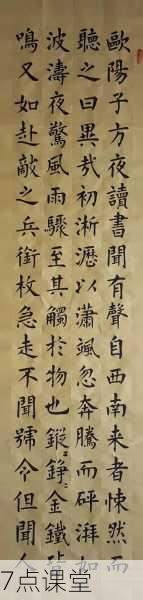 歐陽子方夜讀書聞有聲自西南来者悚然而
聽之曰異哉初淅瀝以蕭颯忽奔騰而砰湃如
波濤夜驚風雨驟至其觸於物也鏦錚金鐵皆
鳴又如赴敵之兵銜枚急走不聞號令但聞人
7点课堂